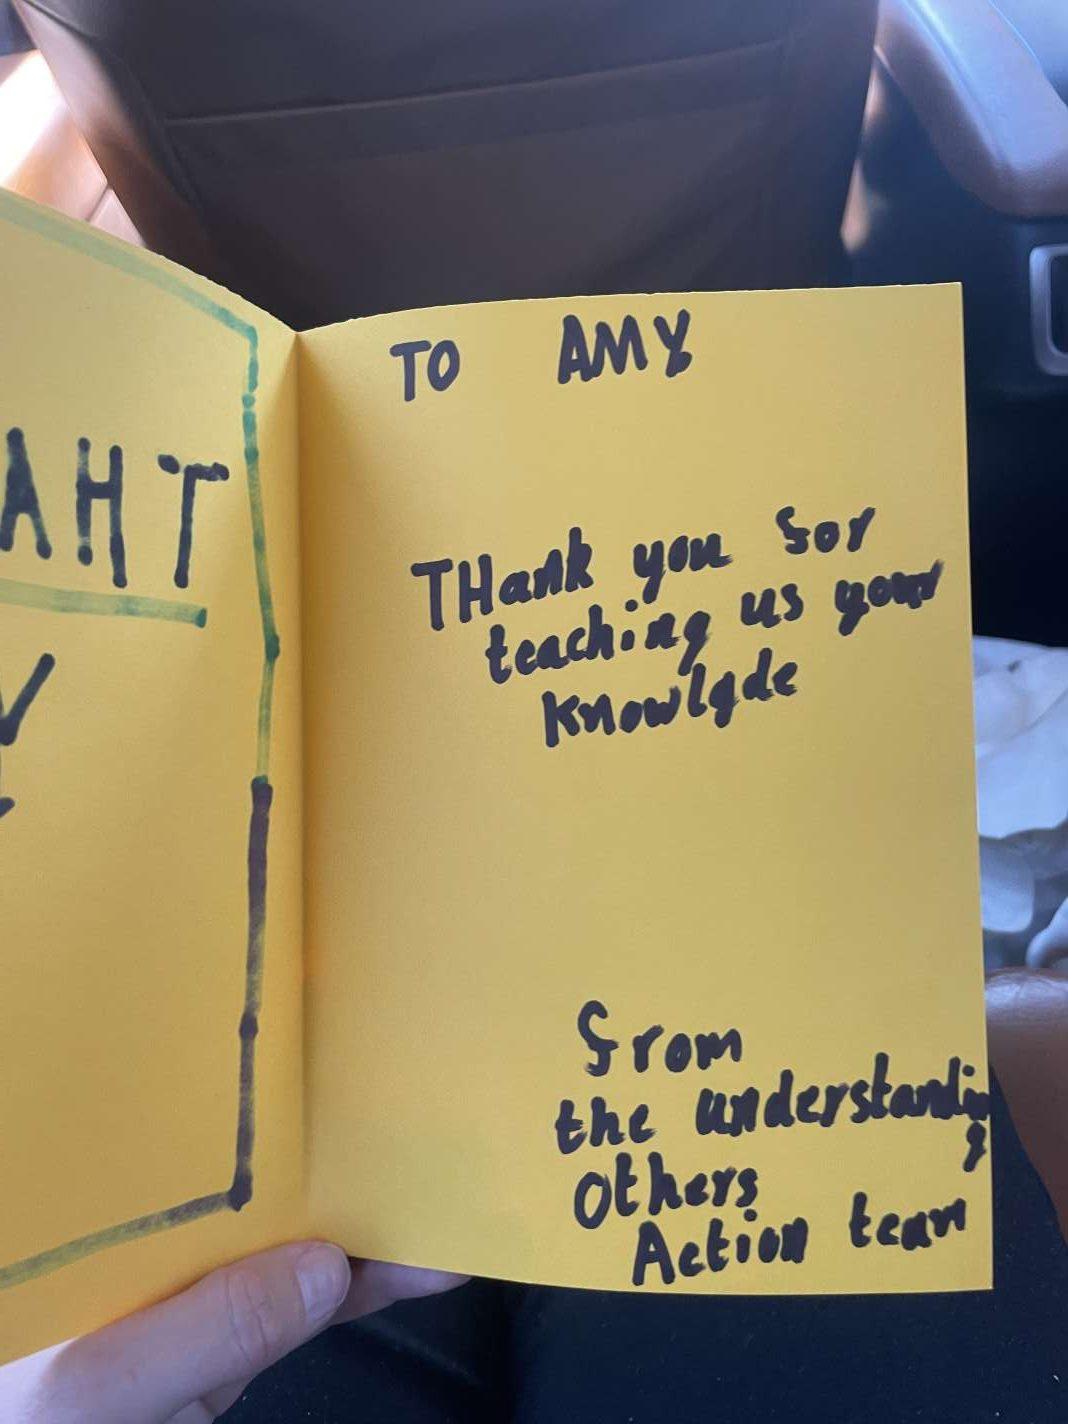 AHT
TO AMY
THank you for
teaching us your
Knowlgde
from
the understandin
g
Others
Action team